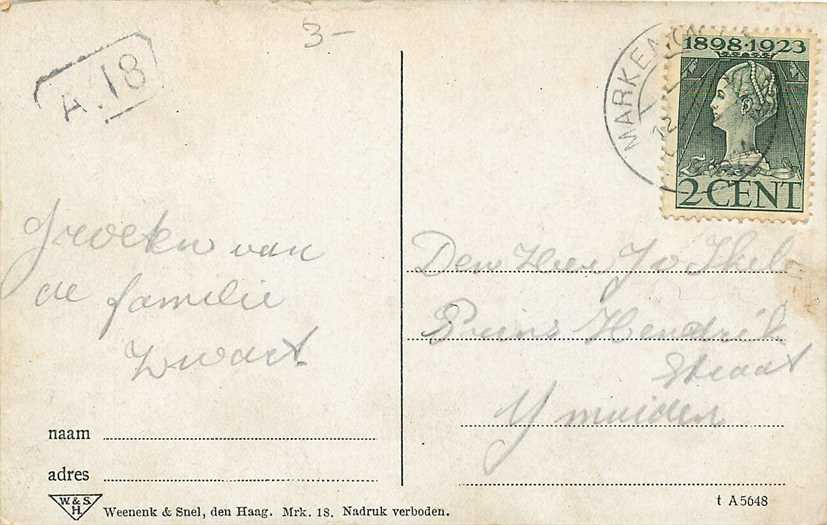 3-
A.18
1898·1923
MARKEN
12
2 CENT
Groeten van
de familie
Zwart.
Den Heer J v
Prins Hendrik
straat
Ymuiden
naam
adres
W. & S.
H.
Weenenk & Snel, den Haag. Mrk. 18. Nadruk verboden.
t A 5648